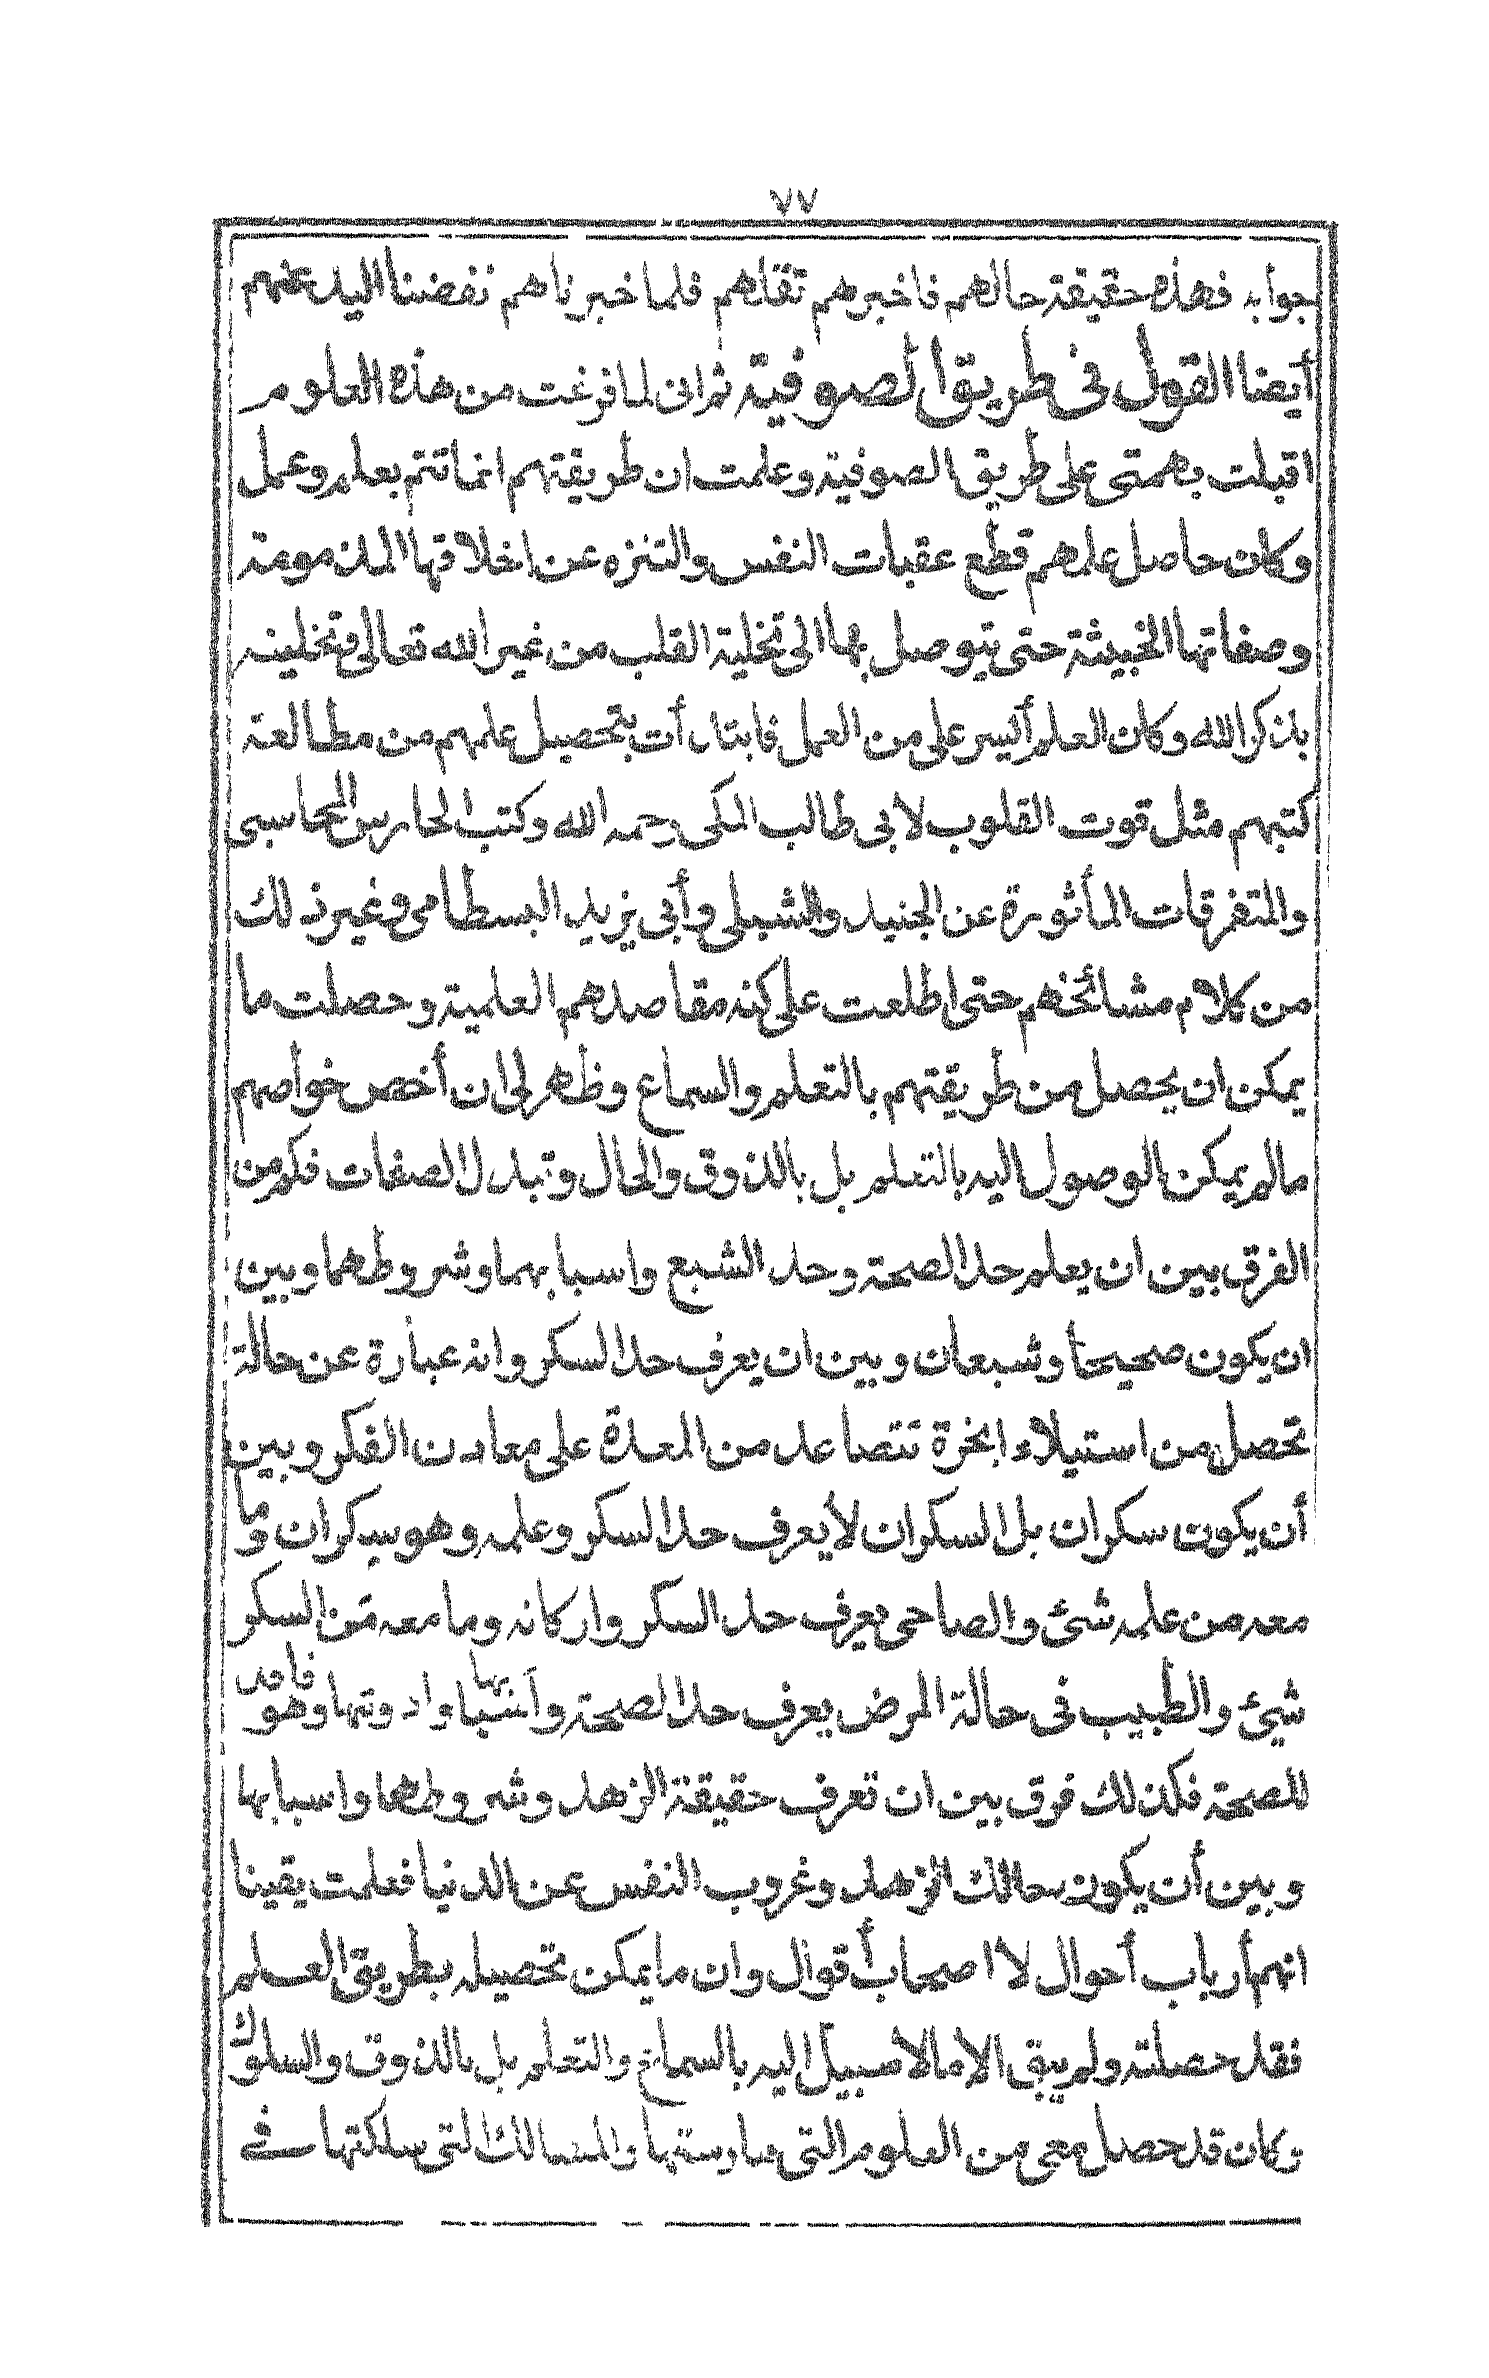 ٧٧
جوابه فهذه حقيقة حالهم فاخبرهم تقلهم فلما خبرناهم نفضنا اليد عنهم
أيضا القول في طريق الصوفية ثم انى لما فرغت من هذه العلوم
اقبلت بهمتى على طريق الصوفية وعلمت ان طريقتهم انما تتم بعلم وعمل
وكان حاصل علمهم قطع عقبات النفس والتنزه عن اخلاقها المذمومة
وصفاتها الخبيثة حتى يتوصل بها الى تخلية القلب من غير الله تعالى وتحليته
بذكر الله وكان العلم أيسر على من العمل فابتدأت بتحصيل علمهم من مطالعة
كتبهم مثل قوت القلوب لابى طالب المكى رحمه الله وكتب الحارس المحاسبى
والمتفرقات المأثورة عن الجنيد والشبلى وأبى يزيد البسطامى وغير ذلك
من كلام مشائخهم حتى اطلعت على كنه مقاصدهم العلمية وحصلت ما
يمكن ان يحصل من طريقتهم بالتعلم والسماع وظهر لى ان أخص خواصهم
مالم يمكن الوصول اليه بالتعلم بل بالذوق والحال وتبدل الصفات فكم من
الفرق بين ان يعلم حد الصحة وحد الشبع واسبابهما وشروطهما وبين
ان يكون صحيحا وشبعان وبين ان يعرف حد السكر وانه عبارة عن حالة
تحصل من استيلاء ابخرة تتصاعد من المعدة على معادن الفكر وبين
أن يكون سكران بل السكران لا يعرف حد السكر وعلمه وهو سكران وما
معه من علمه شئ والصاحى يعرف حد السكر واركانه وما معه من السكر
شيئ والطبيب فى حالة المرض يعرف حد الصحة وأسبابها وادويتها وهو فاقد
للصحة فكذلك فرق بين ان تعرف حقيقة الزهد وشروطها واسبابها
وبين أن يكون حالك الزهد وغروب النفس عن الدنيا فعلمت يقينا
انهم أرباب أحوال لا اصحاب أقوال وان ما يمكن تحصيله بطريق العلم
فقد حصلته ولم يبق الا مالا سبيل اليه بالسماع والتعلم بل بالذوق والسلوك
وكان قد حصل معى من العلوم التى مارستها والمسالك التى سلكتها فى